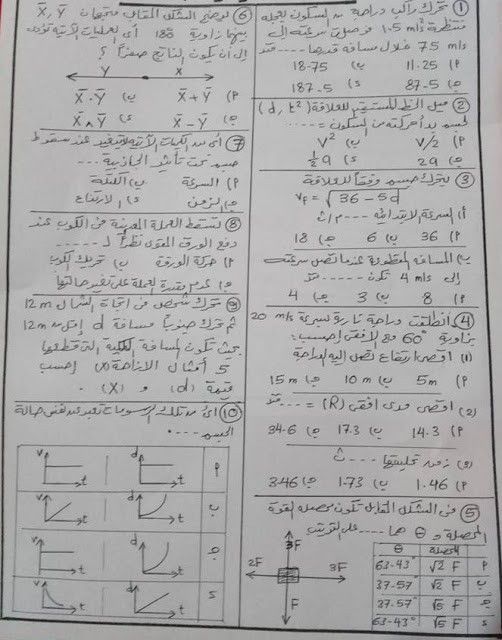 ① تحرك راكب دراجة من السكون بعجلة
منتظمة 1.5 m/s² فوصلت سرعته إلى
7.5 m/s خلال مسافة قدرها .... متر
P) 11.25 ب) 18.75
جـ) 87.5 د) 187.5
② ميل الخط المستقيم للعلاقة (d, t²)
لجسم بدأ حركته من السكون = ....
P) V/2 ب) V²
جـ) 2a د) ½a
③ يتحرك جسم وفقاً للعلاقة
Vf = √36 - 5d
أ) السرعة الابتدائية .... م/ث
P) 36 ب) 6 جـ) 18
ب) المسافة المقطوعة عندما تصل سرعته
إلى 4 m/s تكون ...... متر
P) 8 ب) 3 جـ) 4
④ انطلقت دراجة نارية بسرعة 20 m/s
بزاوية 60° مع الأفقي احسب:
(1) أقصى ارتفاع تصل إليه الدراجة
P) 5m ب) 10 m جـ) 15 m
(2) أقصى مدى أفقي (R) = .... متر
P) 14.3 ب) 17.3 جـ) 34.6
(3) زمن تحليقها .... ث
P) 1.46 ب) 1.73 جـ) 3.46
⑤ في الشكل المقابل تكون محصلة القوة
المحصلة و θ هما ..... على الترتيب
3F
2F 3F
F
المحصلة θ
P √2 F 63.43°
ب √2 F 37.57°
جـ √5 F 37.57°
د √5 F 63.43°
⑥ توضح الشكل المقابل متجهان X, Y
بينهما زاوية 180 أي العمليات الآتية تؤدي
إلى أن يكون الناتج صفراً ؟
Y X
P) X + Y ب) X . Y
جـ) X - Y د) X ∧ Y
⑦ أي من الكميات الآتية لا يتغير عند سقوط
جسم تحت تأثير الجاذبية ....
P) السرعة ب) الكتلة
جـ) الزمن د) الارتفاع
⑧ تسقط العملة المعدنية في الكوب عند
دفع الورق المقوى نظراً لـ ......
P) حركة الورقة ب) تحريك الكوب
جـ) عدم مقدرة العملة على تغيير حالتها
⑨ تحرك شخص في اتجاه الشمال 12m
ثم تحرك جنوباً مسافة d أكبر من 12m
بحيث تكون المسافة الكلية التي قطعها
5 أمثال الإزاحة (X) احسب
قيمة (d) و (X) .
⑩ أي من تلك الرسومات تعبر عن نفس حالة
الجسم ....
P d t V t
ب d t V t
جـ d t V t
د d t V t